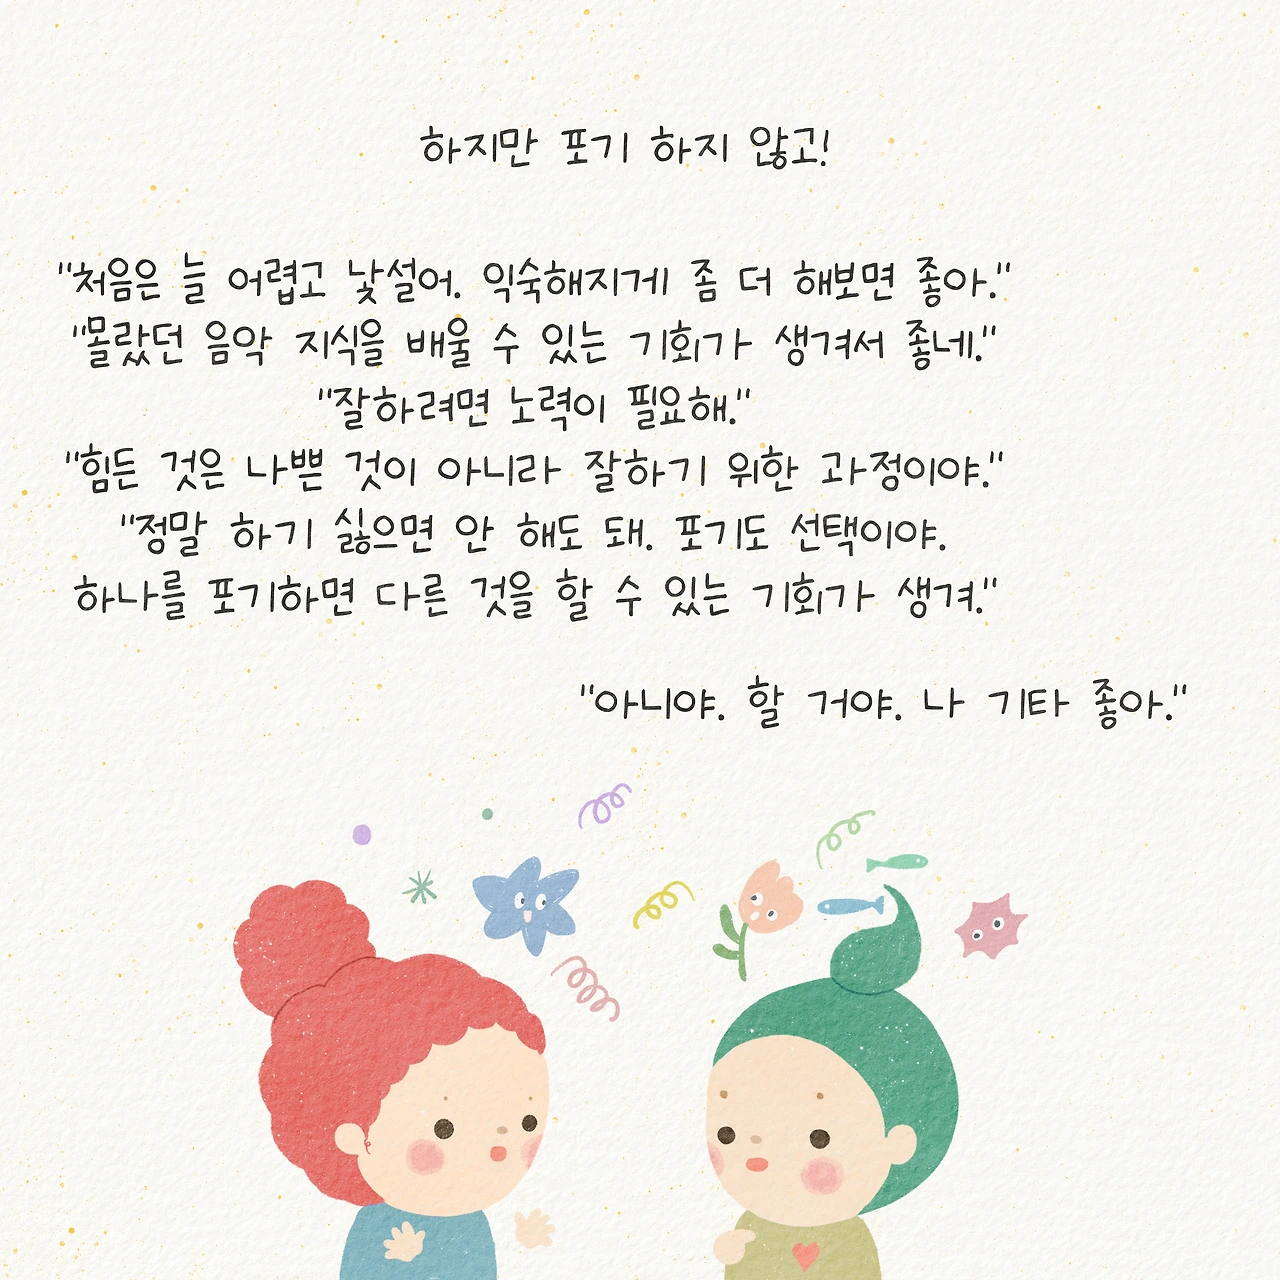 하지만 포기 하지 않고!
"처음은 늘 어렵고 낯설어. 익숙해지게 좀 더 해보면 좋아."
"몰랐던 음악 지식을 배울 수 있는 기회가 생겨서 좋네."
"잘하려면 노력이 필요해."
"힘든 것은 나쁜 것이 아니라 잘하기 위한 과정이야."
"정말 하기 싫으면 안 해도 돼. 포기도 선택이야.
하나를 포기하면 다른 것을 할 수 있는 기회가 생겨."
"아니야. 할 거야. 나 기타 좋아."